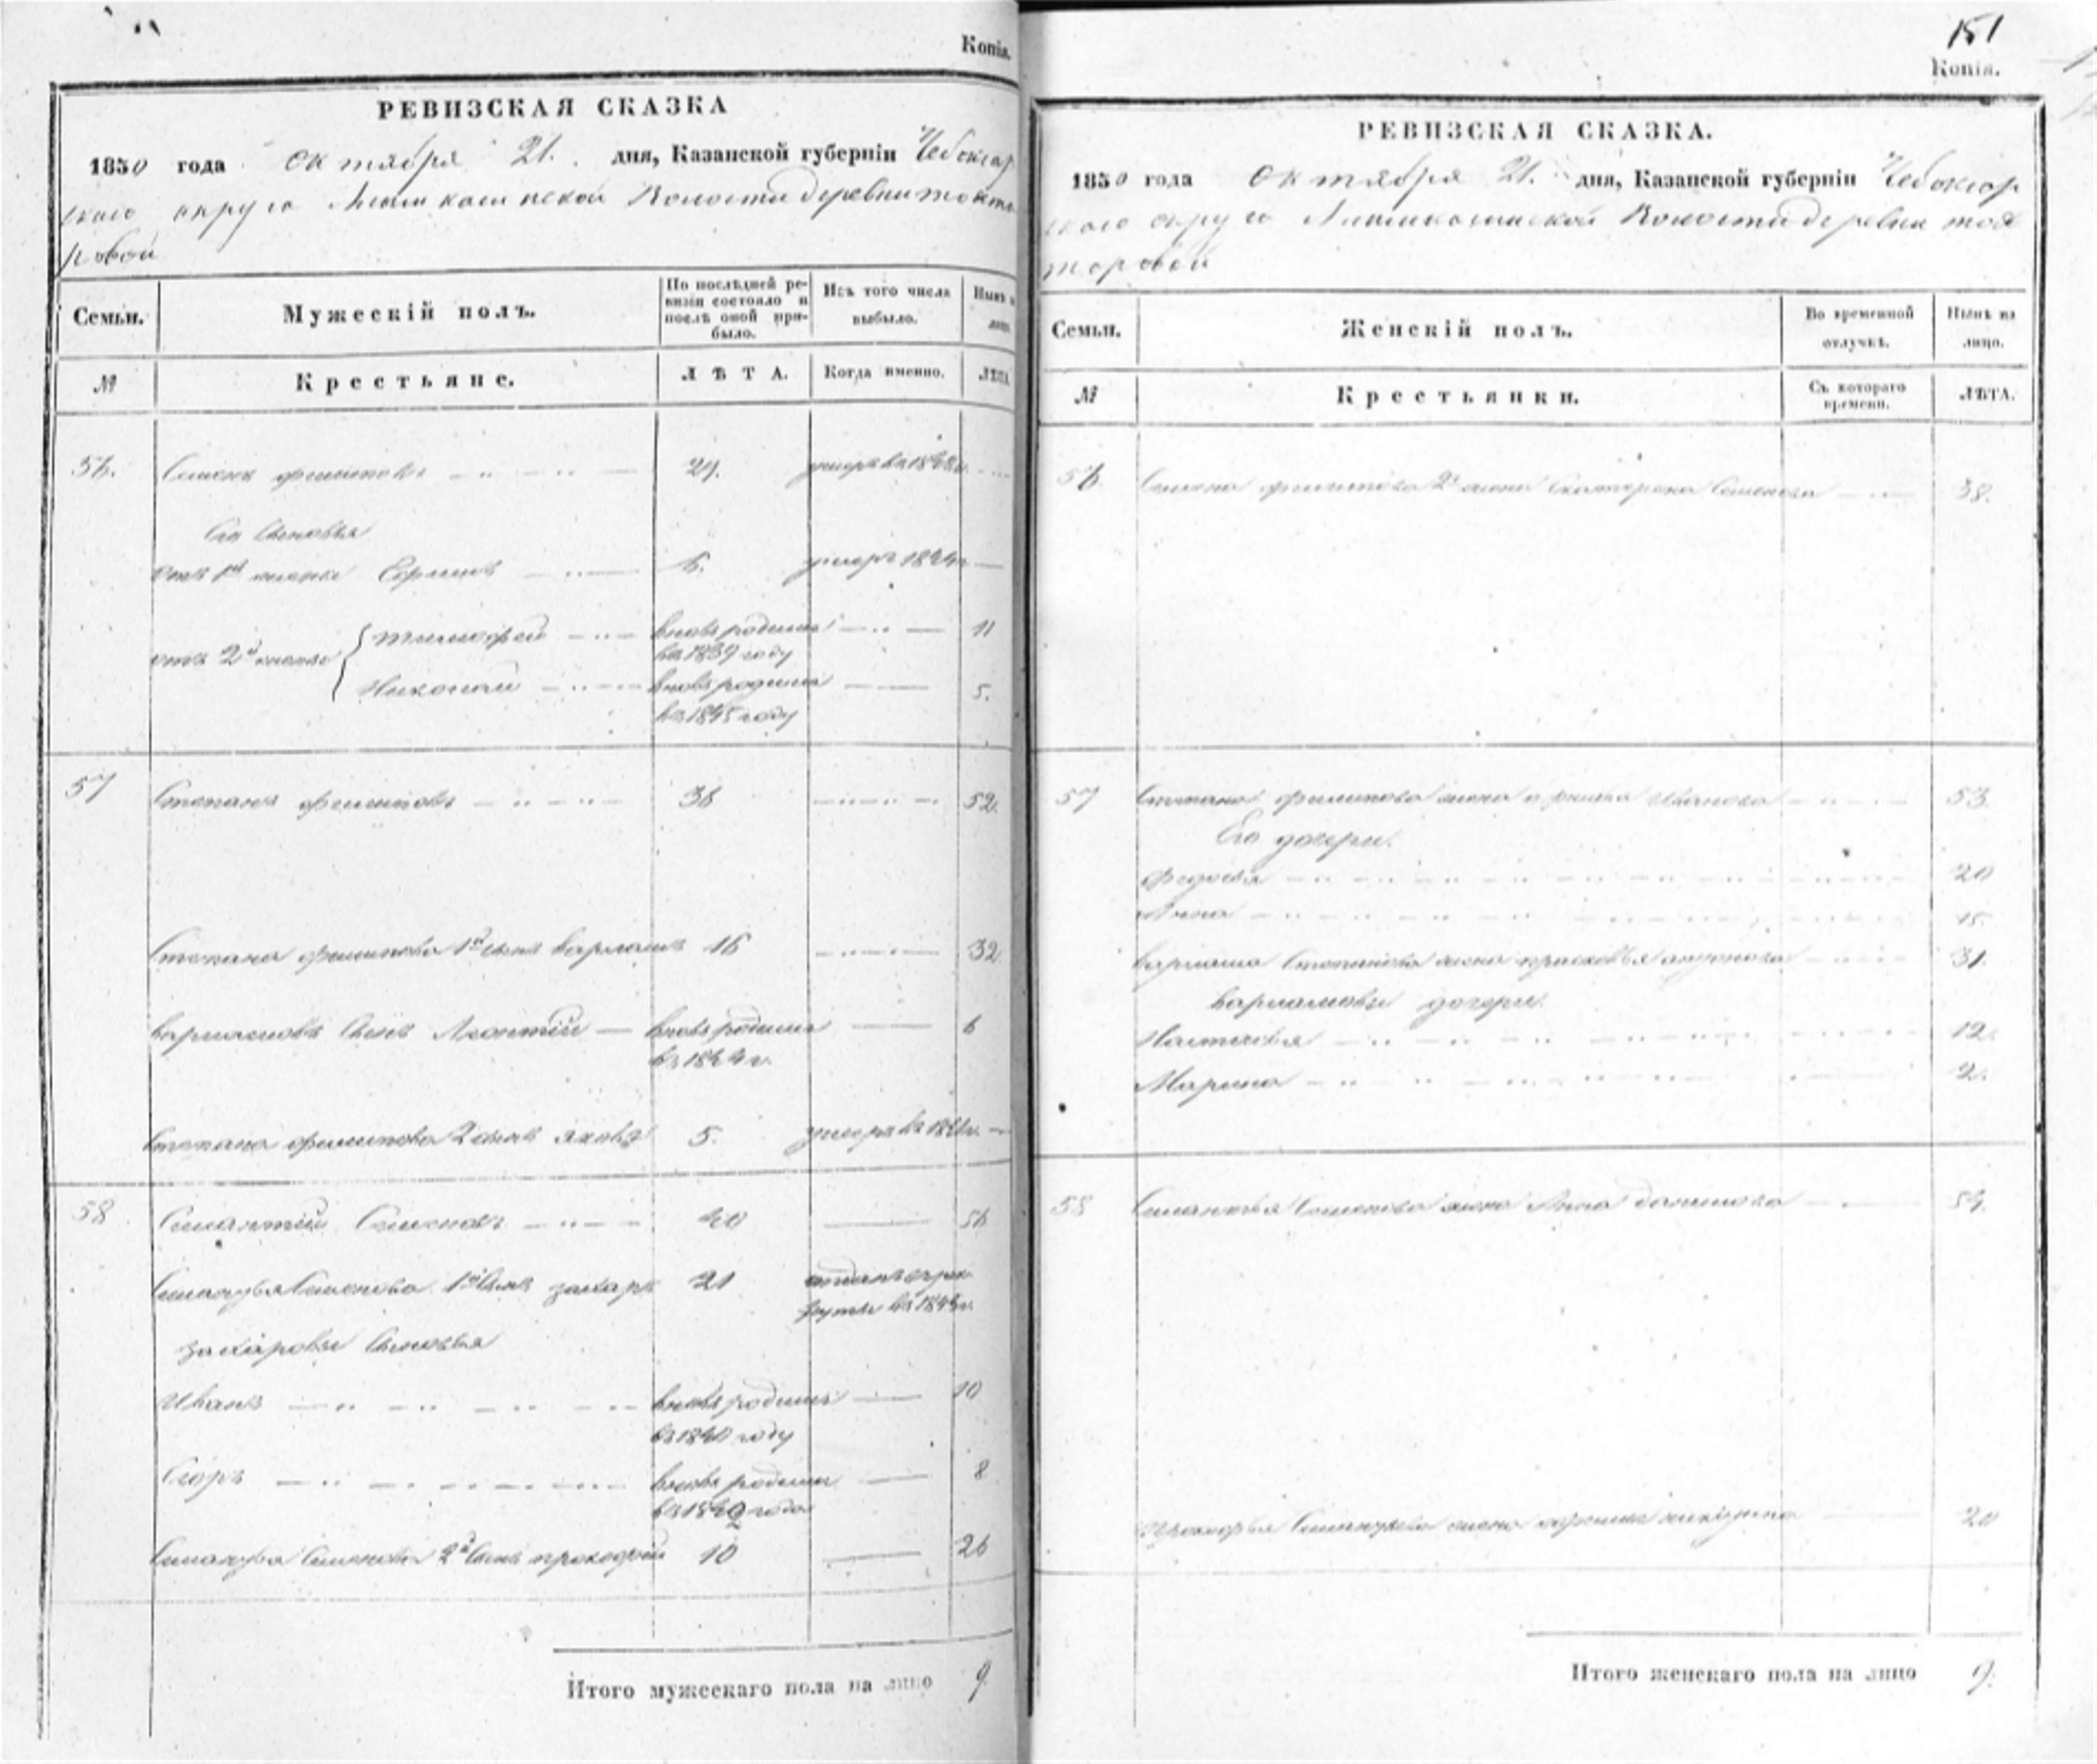 Копія.
РЕВИЗСКАЯ СКАЗКА
1850 года октября 21. дня, Казанской губерніи Чебоксар
скаго округа волости деревни токта
ровой
Семьи.
Мужескій полъ.
По послѣдней ре-
визіи состояло и
послѣ оной при-
было.
Изъ того числа
выбыло.
Нынѣ
лицо
№
Крестьяне.
ЛѢТА.
Когда именно.
ЛѢТА
56. Семенъ филиповъ 29.
Его сыновья
отъ 1й жены 6. умеръ 1844
отъ 2й жены
Тимофей вновь родился 11
въ 1839 году
Николай вновь родился 5.
въ 1845 году
57 Степанъ филиповъ 36 52.
Степана филипова 1й сынъ варламъ 16 32
варламовъ сынъ Леонтій вновь родился 6
въ 1844 г.
Степана филипова 2 сынъ яковъ 5. умеръ въ
58 Семеновъ 40 56
Семенова 1й сынъ захаръ 21
захаровы сыновья
Иванъ вновь родился 10
въ 1840 году
Егоръ вновь родился 8
въ 1842 года
Семенова 2й сынъ прокофій 10 26
Итого мужескаго пола на лицо 9
151
Копія.
РЕВИЗСКАЯ СКАЗКА.
1850 года октября 21. дня, Казанской губерніи Чебоксар
скаго округа волости деревни ток
таровой
Семьи.
Женскій полъ.
Во временной
отлучкѣ.
Нынѣ на
лицо.
№
Крестьянки.
Съ котораго
времени.
ЛѢТА.
56 Семена филипова 2я жена Екатерина Семенова 38.
57 Степана филипова жена Иванова 53
Его дочери.
Федосья 20
Анна 15.
варлама Степанова жена прасковья 31.
варламовы дочери.
Настасья 12.
Марина 2.
58 Семенова жена Анна данилова 54.
жена 20
Итого женскаго пола на лицо 9.